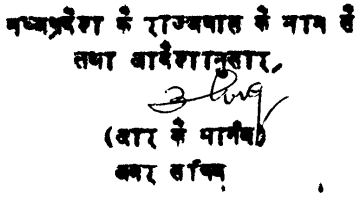 मध्यप्रदेश के राज्यपाल के नाम से
तथा आदेशानुसार,
(आर के भार्गव)
अवर सचिव